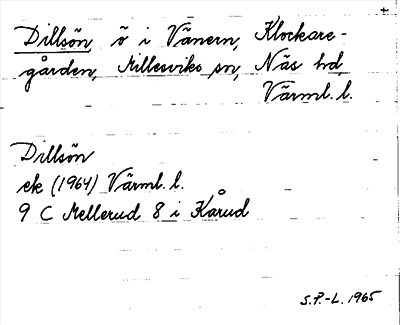 Dillsön, ö i Vänern, Klockare-
gården, Millesviks sn, Näs hd,
Värml. l.
Dillsön
ek (1964) Värml. l.
9 C Mellerud 8 i Kårud
S.P.-L. 1965